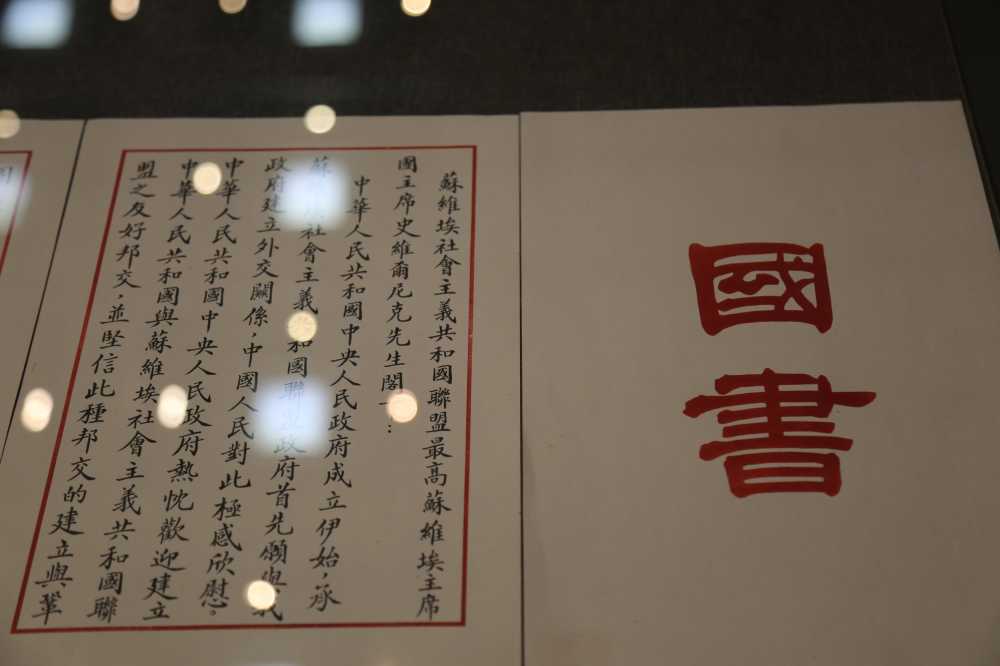 國書
蘇維埃社會主義共和國聯盟最高蘇維埃主席
國主席史維爾尼克先生閣
中華人民共和國中央人民政府成立伊始，承
蘇社會主義和國聯政府首先願與
政府建立外交關係，中國人民對此極感欣慰。
中華人民共和國中央人民政府熱忱歡迎建立
中華人民共和國與蘇維埃社會主義共和國聯
盟之友好邦交，並堅信此種邦交的建立與鞏